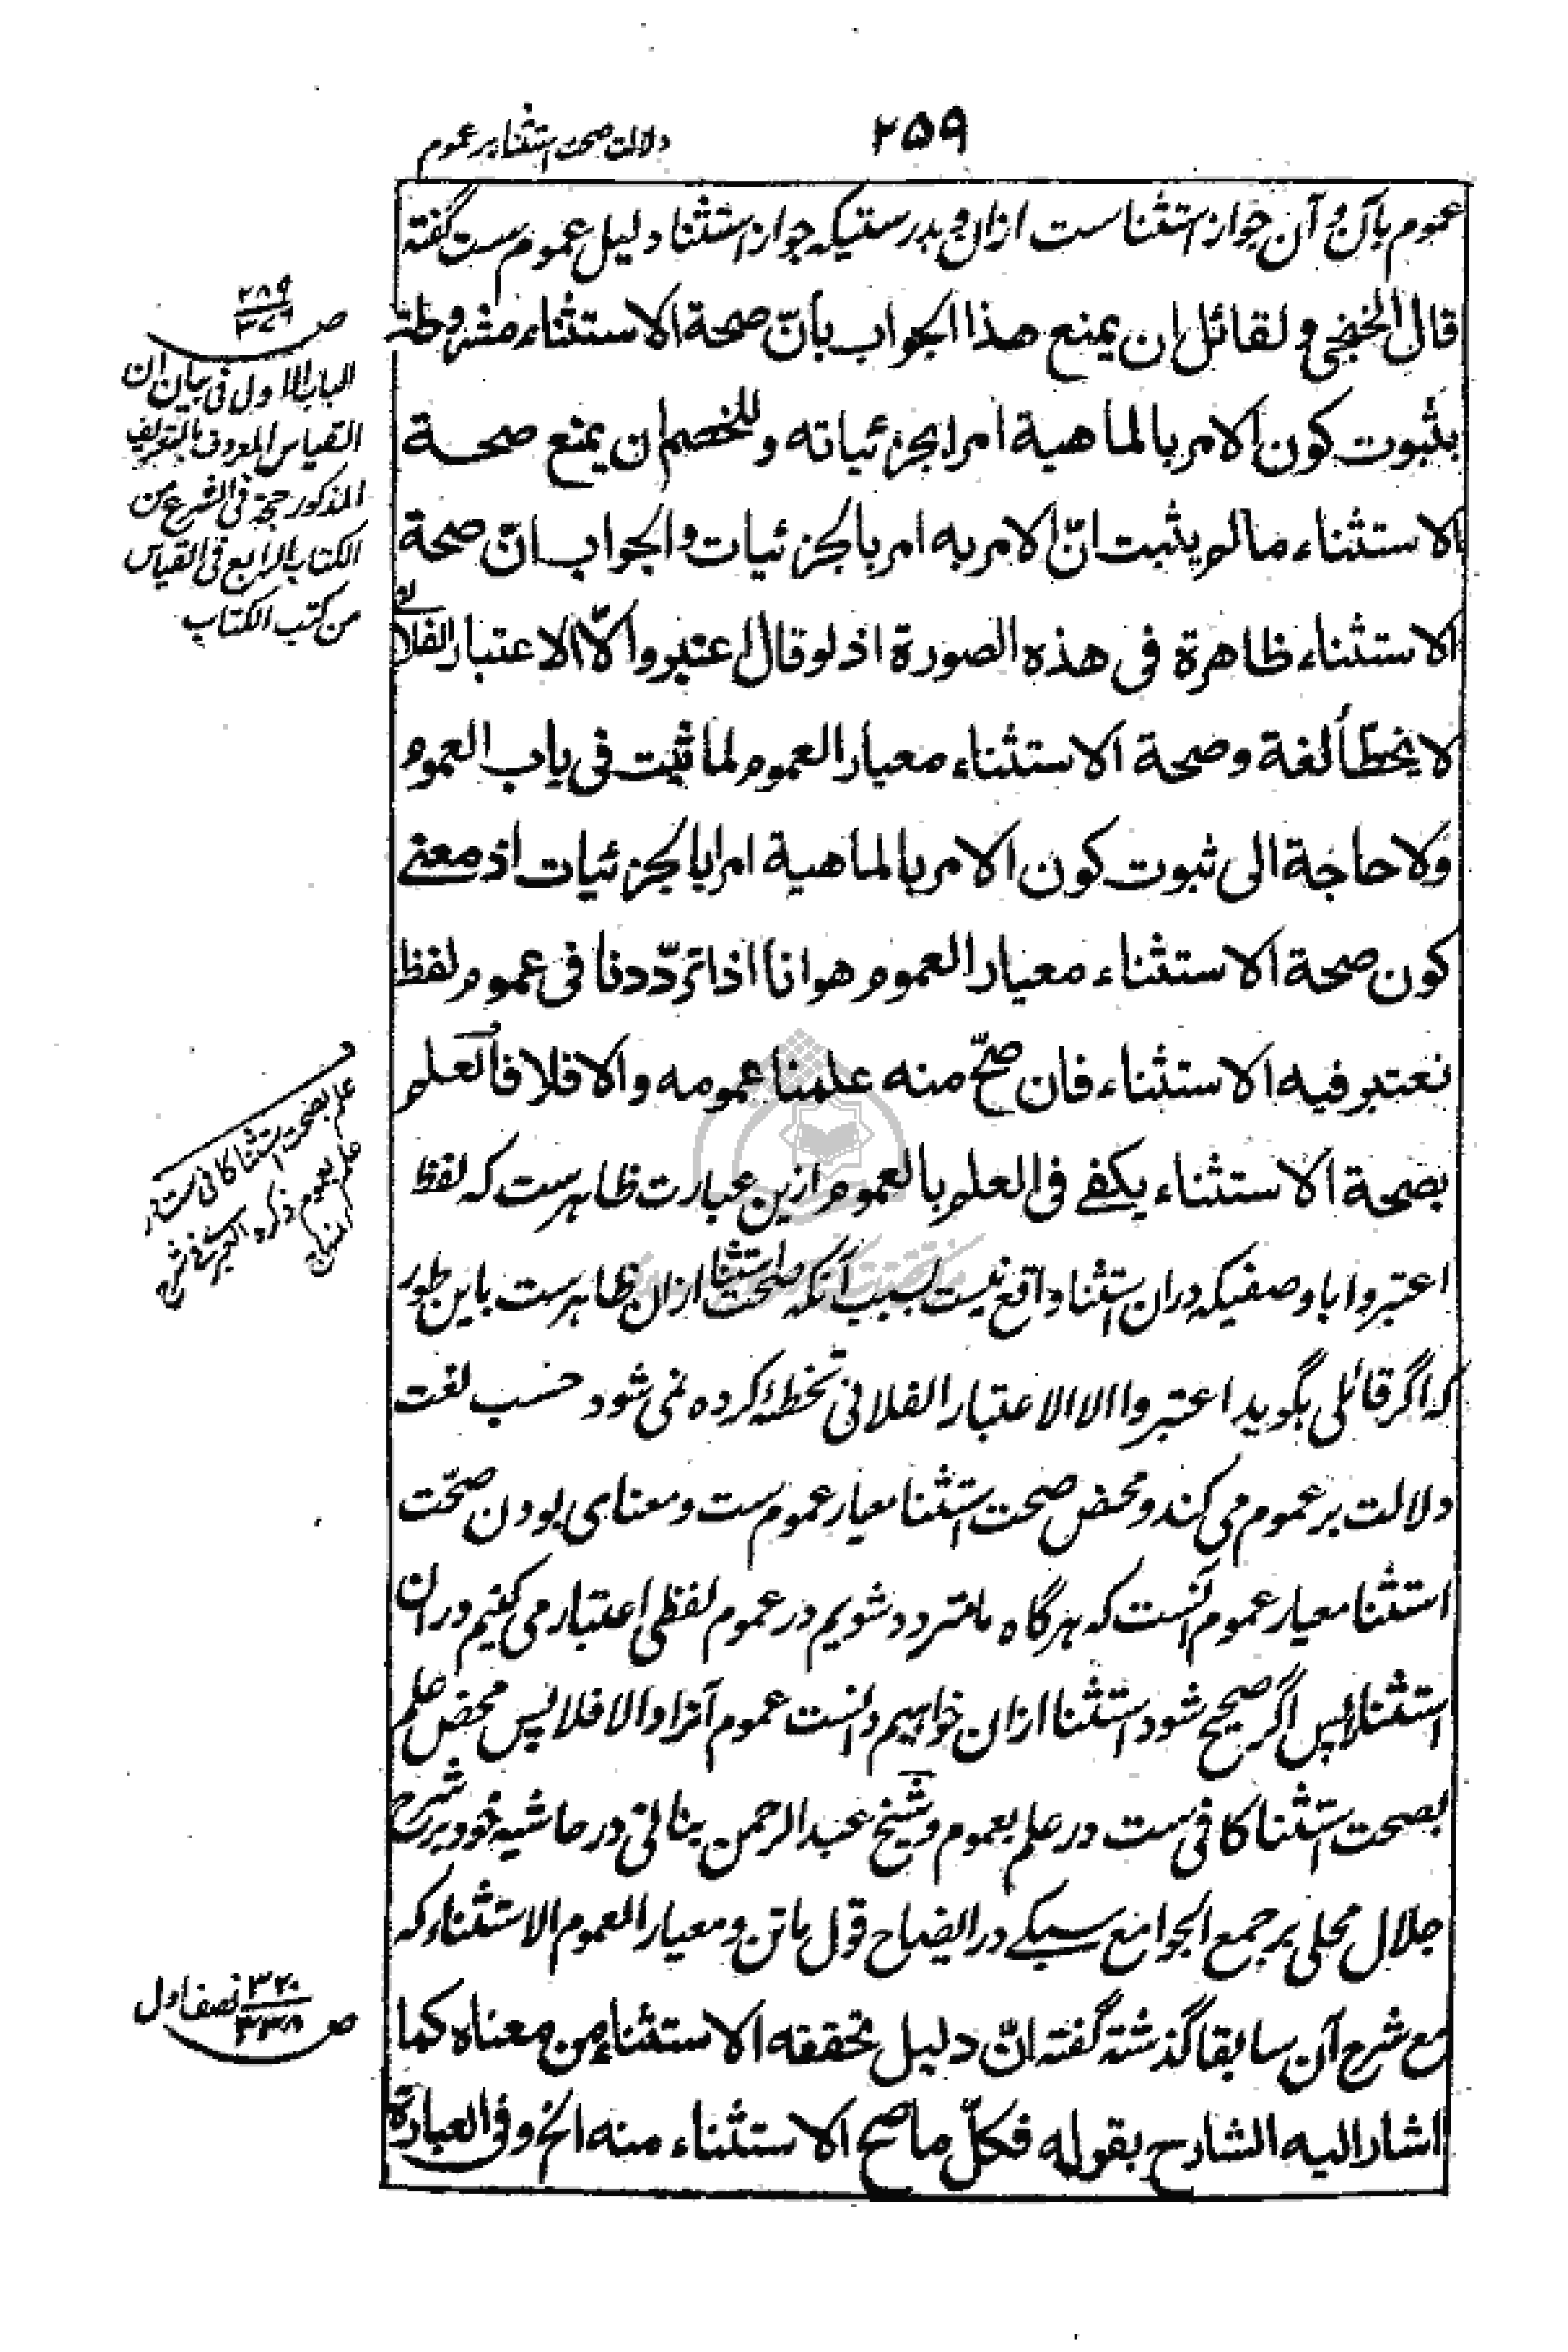 ۲۵۹
دلالت صحت استثنا بر عموم
عموم بآن و آن جواز استثناست ازان و بدرستیکه جواز استثنا دلیل عموم ست گفته
قال الخنجی و لقائل ان یمنع هذا الجواب بأنّ صحة الاستثناء مشروطة
بثبوت کون الامر بالماهیة امرا بجزئیاته وللخصم ان یمنع صحة
الاستثناء مالم یثبت انّ الامر به امر بالجزئیات والجواب انّ صحة
الاستثناء ظاهرة فی هذه الصورة اذ لو قال اعتبروا الّا الاعتبار الفلانی
لا یخطّأ لغة وصحة الاستثناء معیار العموم لما ثبت فی باب العموم
ولا حاجة الی ثبوت کون الامر بالماهیة امرا بالجزئیات اذ معنے
کون صحة الاستثناء معیار العموم هو انا اذا تردّدنا فی عموم لفظ
نعتبر فیه الاستثناء فان صحّ منه علمنا عمومه والا فلا فالعلم
بصحة الاستثناء یکفے فی العلم بالعموم ازین عبارت ظاهرست که لفظ
اعتبروا با وصفیکه دران استثنا واقع نیست بسبب آنکه صحت استثنا ازان ظاهرست باین طور
که اگر قائلی بگوید اعتبروا الا الاعتبار الفلانی تخطئه کرده نمی شود حسب لغت
دلالت بر عموم می کند و محض صحت استثنا معیار عموم ست و معنای بودن صحّت
استثنا معیار عموم آنست که هرگاه ما متردد شویم در عموم لفظی اعتبار می کنیم دران
استثنا را پس اگر صحیح شود استثنا ازان خواهیم دانست عموم آنرا و الا فلا پس محض علم
بصحت استثنا کافی ست در علم بعموم و شیخ عبد الرحمن بنانی در حاشیه خود بر شرح
جلال محلی بر جمع الجوامع سبکے در ایضاح قول ماتن و معیار العموم الاستثناء که
مع شرح آن سابقا گذشته گفته انّ دلیل تحققه الاستثناء من معناه کما
اشار الیه الشارح بقوله فکلّ ما صح الاستثناء منه الخ وفی العبارة
ص ۲۸۹
۳۴۶
الباب الاول فی بیان ان
القیاس المعروف بالتعریف
المذکور حجة فی الشرع من
الکتاب الرابع فی القیاس
من کتب الکتاب
علم بصحت استثنا کافی ست در
علم بعموم ذکره العبری فی شرح
المنهاج
ص ۳۲۰ نصف اول
۳۳۸